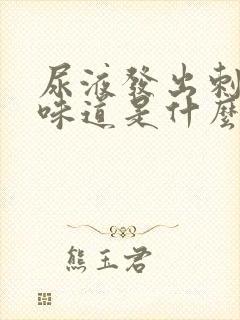 尿液發出刺
味道是什麼
熊玉君